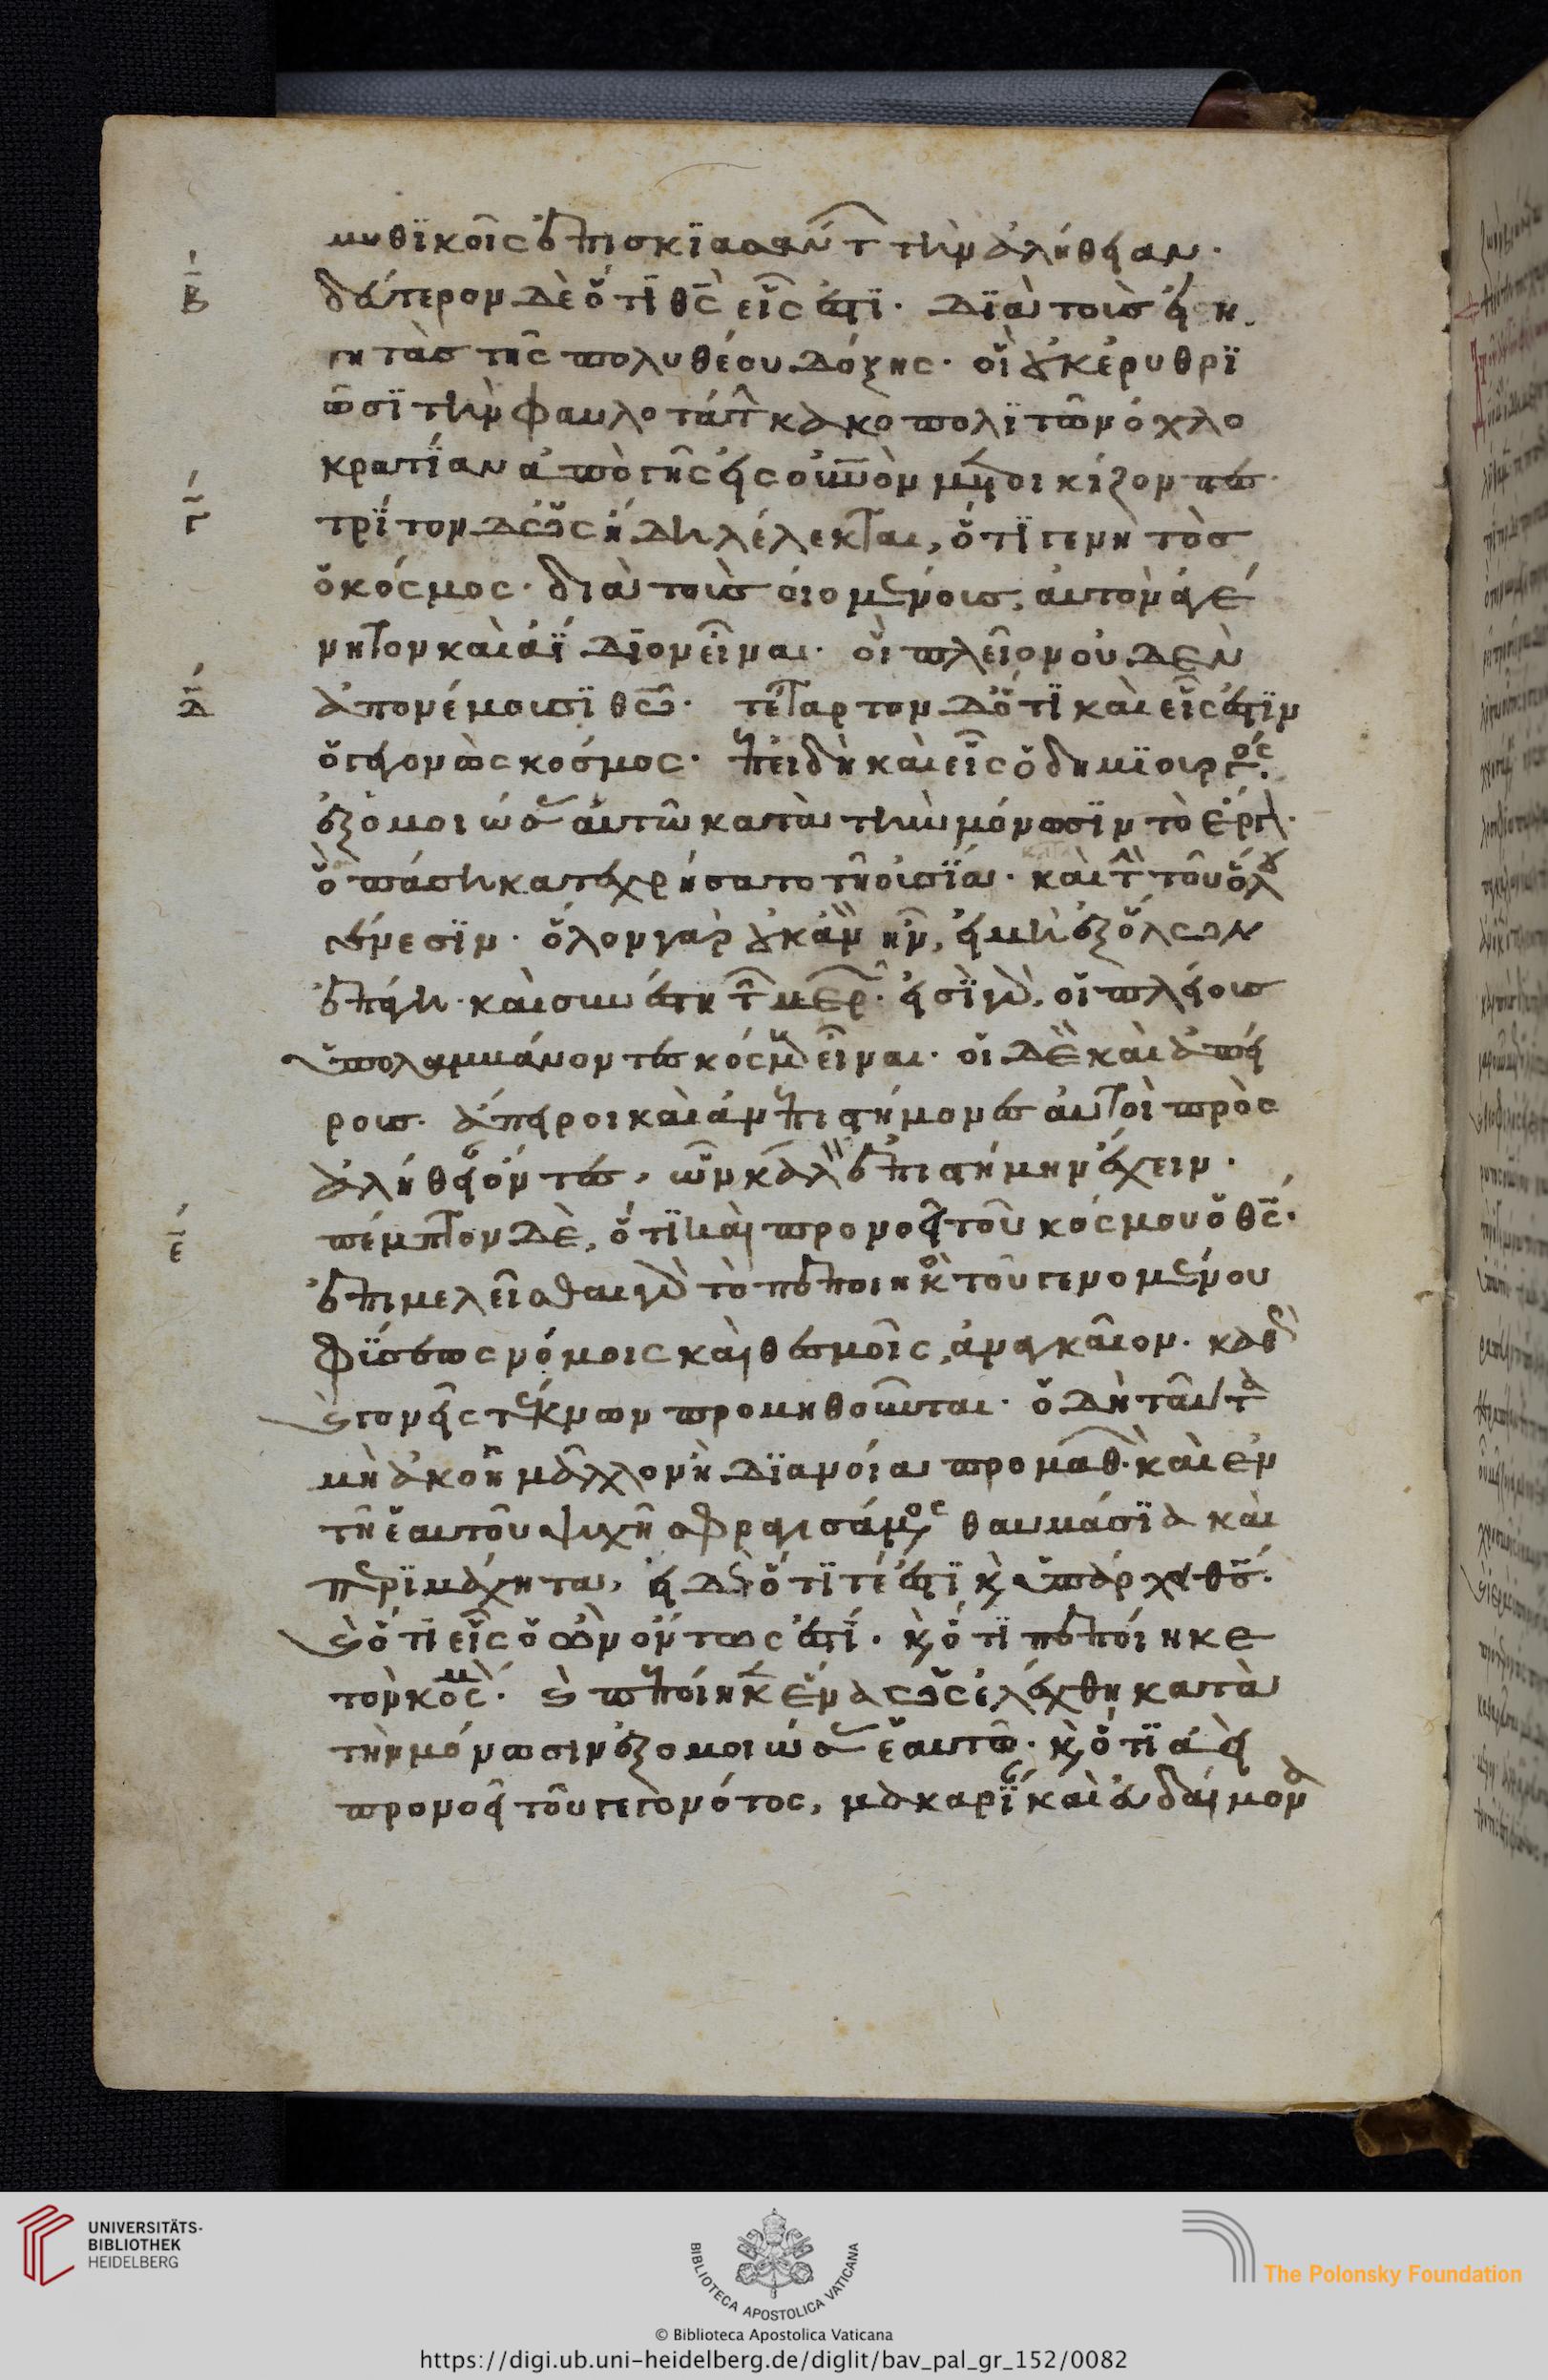 μυθϊκοῖς ἐπισκϊασαντ τὴν ἀλήθειαν·
Β δεύτερον δὲ ὅτϊ θς εἷς ἐστϊ· δϊὰ τοὺς εἰση
γητὰς τῆς πολυθέου δόξης· οἳ οὐκ ἐρυθρϊ
ῶσϊ τὴν φαυλοτάτ κακοπολϊτῶν ὀχλο
κρατίαν ἀπὸ γῆς εἰς οὐνὸν μετοικίζοντες·
Γ τρίτον δ ὡς ἤδη λέλεκται, ὅτϊ γενητὸς
ὁ κόσμος· διὰ τοὺς οἰομένους, αὐτὸν ἀγέ
νητον καὶ ἀΐδιον εἶναι· οἳ πλεῖον οὐδὲν
Δ ἀπονέμουσϊ θω· τέταρτον δ ὅτϊ καὶ εἷς ἐστϊν
ὁ γεγονὼς κόσμος· ἐπειδὴ καὶ εἷς ὁ δημϊουργός·
ἐξομοιώσας αὐτῶ κατὰ τὴν μόνωσϊν τὸ ἔργον·
ὃ πάση κατεχρήσατο τῆ οὐσϊα· καὶ τ τοῦ ὅλου
γένεσϊν· ὅλον γὰρ οὐκ ἂν ἦν, εἰ μὴ ἐξ ὅλων
ἐπάγη· καὶ συνέστη τ μερ· εἰσϊ γὰρ, οἳ πλείους
ὑπολαμβάνοντες κόσμους εἶναι· οἳ δὲ καὶ ἀπεί
ρους· ἄπειροι καὶ ἀνεπιστήμονες αὐτοὶ πρὸς
ἀλήθειαν ὄντες, ὧν καλὸν ἐπιστήμην ἔχειν·
Ε πέμπτον δὲ, ὅτϊ καὶ προνοεῖ τοῦ κόσμου ὁ θς·
ἐπιμελεῖσθαι γὰρ τὸ πεποιηκὸς τοῦ γενομένου
φύσεως νόμοις καὶ θεσμοῖς, ἀναγκαῖον· καθ οὓς
καὶ γονεῖς τέκνων προμηθοῦνται· ὁ δὴ ταῦτα
μὴ ἀκοῆ μᾶλλον ἢ δϊανοία προμαθ καὶ ἐν
τῆ ἑαυτοῦ ψυχῆ σφραγισάμενος θαυμάσϊα καὶ
περϊμάχητα, ὅτϊ τέ ἐστϊ κ ὑπάρχει θς·
κ ὅτϊ εἷς ὁ ὢν ὄντως ἐστί· κ ὅτϊ πεποίηκε
τὸν κόσμ· κ πεποίηκεν ἕνα ὡς ἐλέχθη κατὰ
τὴν μόνωσιν ἐξομοιώσας ἑαυτῶ· κ ὅτϊ ἀεὶ
προνοεῖ τοῦ γεγονότος, μακαρϊ καὶ εὐδαίμονα
UNIVERSITÄTS-
BIBLIOTHEK
HEIDELBERG
BIBLIOTECA APOSTOLICA VATICANA
The Polonsky Foundation
© Biblioteca Apostolica Vaticana
https://digi.ub.uni-heidelberg.de/diglit/bav_pal_gr_152/0082